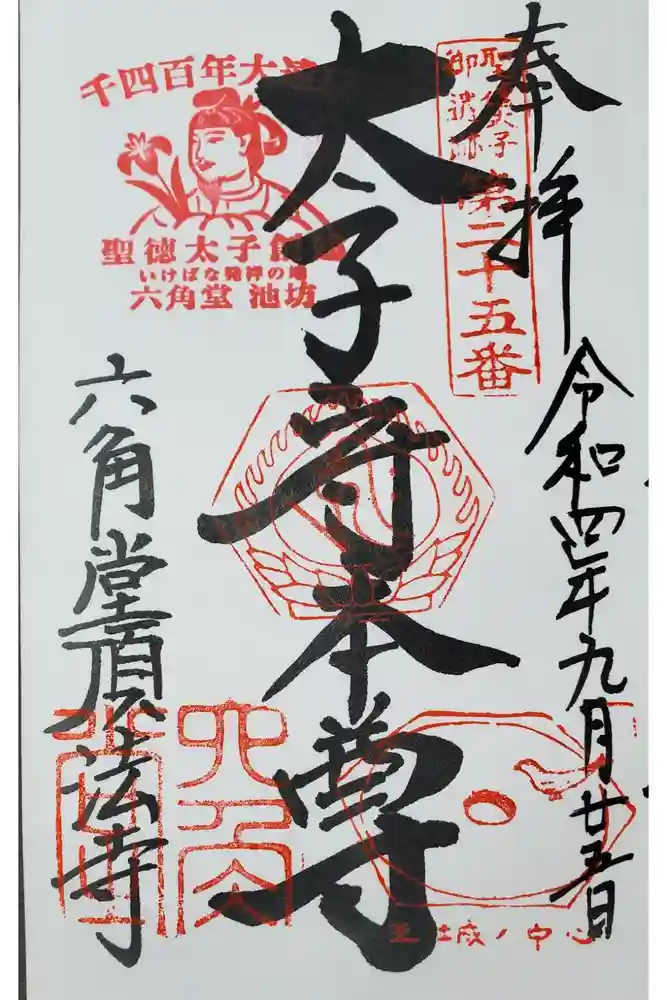 奉拝
令和四年九月廿五日
聖徳太子
御遺跡
第二十五番
太子守本尊
千四百年大
聖徳太子創
いけばな発祥の地
六角堂 池坊
六角堂頂法寺
六角
城ノ中心